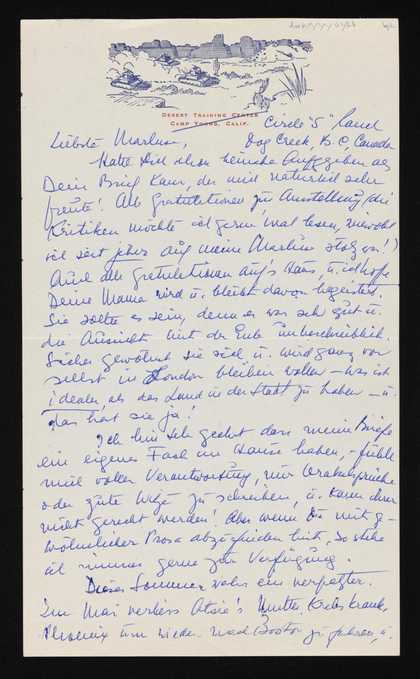 DESERT TRAINING CENTER
CAMP YOUNG, CALIF.
Circle "S" Land
Liebste Marlene, Dog Creek, B.C, Canada
Hatte Dich schon beinahe aufgegeben als
Dein Brief kam, der mich natürlich sehr
freute! Alle Gratulationen zur Ausstellung, die
Kritiken möchte ich gerne mal lesen, wiewohl
ich seit jeher auf meine Marlene stolz
Auch alle Gratulationen auf's Haus, u. ich hoffe
Deine Mama wird u. bleibt davon begeistert.
Sie sollte es sein, denn es war sehr gut u.
die Aussicht mit der Ente unbeschreiblich.
Sicher gewöhnt sie sich u. wird ganz von
selbst in London bleiben wollen – was ist
idealer, als das Land in der Stadt zu haben – u.
das hat sie ja!
Ich bin sehr geehrt dass meine Briefe
ein eigenes Fach im Hause haben, – fühle
mich voller Verantwortung, nur Orakelsprüche
oder gute Witze zu schreiben, u. kann dem
nicht gerecht werden! Aber wenn Du mit ge-
wöhnlicher Prosa abzufinden bist, so stehe
ich immer gerne zur Verfügung.
Dieser Sommer war ein verpatzter.
Im Mai verliess Mutter, Krebskrank,
Phoenix um wieder nach Boston zu fahren, u.